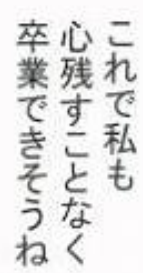 これで私も
心残すことなく
卒業できそうね